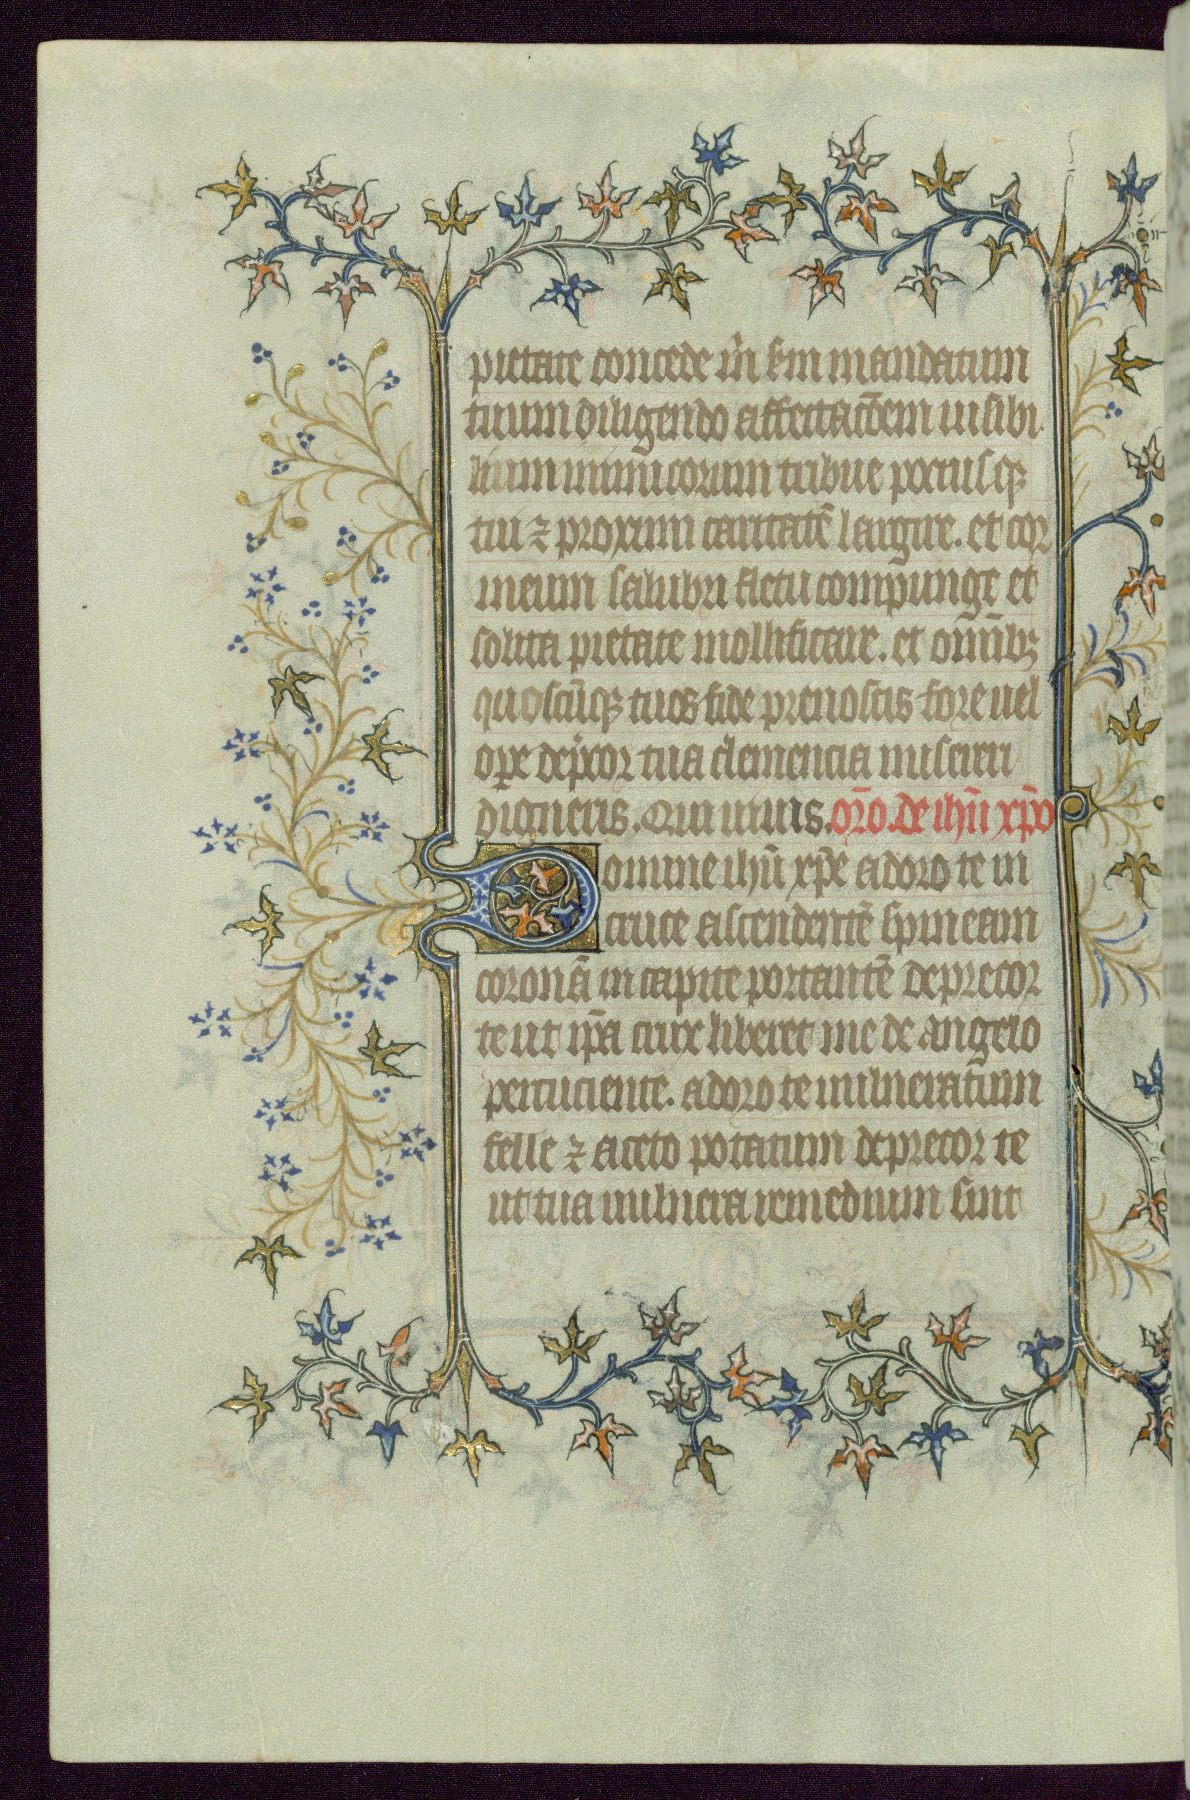 pietate concede in̄ s̄m mandatum
tuum diligendo affectac̄oem inuisibi
lium inimicorum tribue per tuisqꝫ
tui ⁊ proximi caritatē largire. et cor
meum salubri fletu compunge et
solita pietate mollificare. et om̄ibꝫ
quoscūqꝫ tuos fide prenostis fore uel
ope dep̄cor tua clemencia misereri
digneris. Qui uiuis. or̄o. de ihū xp̄o
Domine ihū xp̄e adoro te in
cruce ascendentē spineam
coronā in capite portantē deprecor
te ut ip̄a crux liberet me de angelo
percuciente. adoro te uulneratum
felle ⁊ aceto potatum deprecor te
ut tua uulnera remedium sint